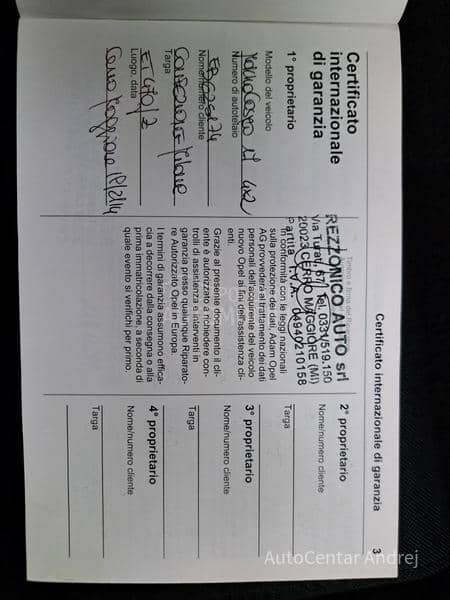 Certificato internazionale di garanzia 3
Certificato
internazionale
di garanzia
1° proprietario
Modello del veicolo
Numero di autotelaio
Nome/numero cliente
Targa
ET470JZ
Luogo, data
Cerro Maggiore 18/2/14
REZZONICO AUTO srl
Via Turati, 67 Tel. 0331/519.150
20023 CERRO MAGGIORE (MI)
Partita I.V.A. 06940210158
In conformità con le leggi nazionali
sulla protezione dei dati, Adam Opel
AG provvederà al trattamento dei dati
personali dell'acquirente del veicolo
nuovo Opel ai fini dell'assistenza cli-
enti.
Grazie al presente documento il cli-
ente è autorizzato a richiedere con-
trolli di assistenza e interventi in
garanzia presso qualunque Riparato-
re Autorizzato Opel in Europa.
I termini di garanzia assumono effica-
cia a decorrere dalla consegna o alla
prima immatricolazione, a seconda di
quale evento si verifichi per primo.
2° proprietario
Nome/numero cliente
Targa
3° proprietario
Nome/numero cliente
Targa
4° proprietario
Nome/numero cliente
Targa
AutoCentar Andrej